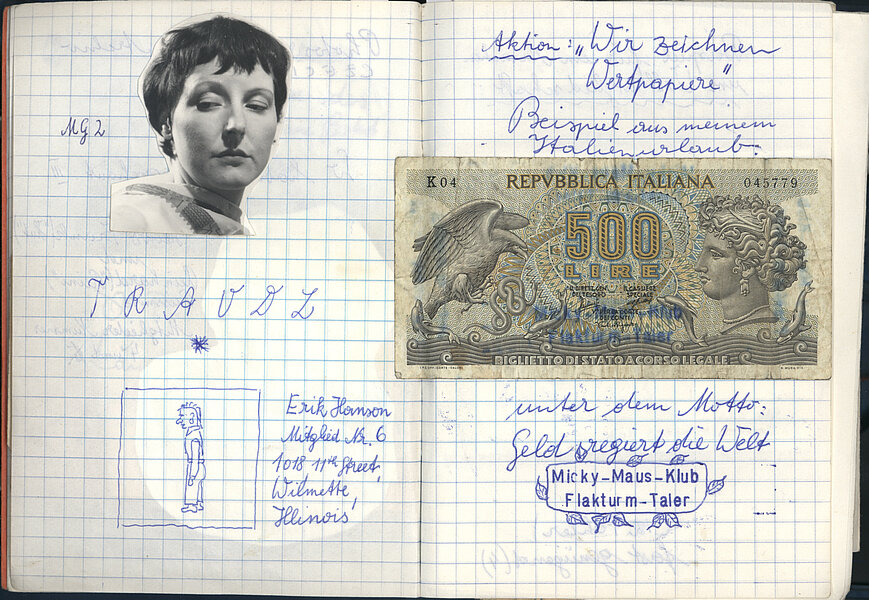 MG 2
T R A U D L
*
Erik Hanson
Mitglied Nr. 6
1018 11th Street,
Wilmette,
Illinois
Aktion: „Wir zeichnen
Wertpapiere"
Beispiel aus meinem
Italienurlaub:
K04 REPVBBLICA ITALIANA 045779
500
LIRE
IL DIRETT. GEN. IL CASSIERE
DEL TESORO SPECIALE
Micky-Maus-Klub
Flakturm-Taler
BIGLIETTO DI STATO A CORSO LEGALE
unter dem Motto:
Geld regiert die Welt
Micky-Maus-Klub
Flakturm-Taler